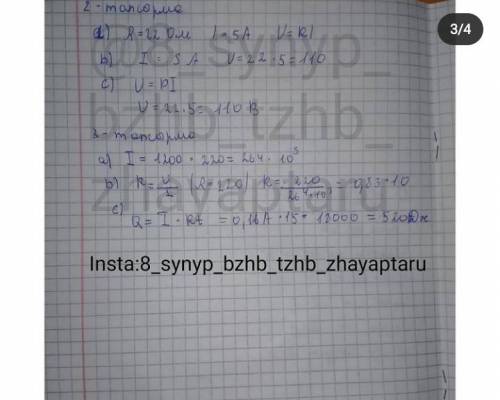 2-тапсырма
a) R=22 Ом I=5A V=RI
3/4
b) I=5A V=22·5=110
c) U=RI
V=22·5=110 В
3-тапсырма
a) I=1200·220=264·10³
b) R=U/I (R=220) R=220/264·10³=0,83·10
c)
Q=I·Rt=0,16A·15·12000=5202Дж
@8_synyp_
bzhb_tzhb_
zhayaptaru
Insta:8_synyp_bzhb_tzhb_zhayaptaru